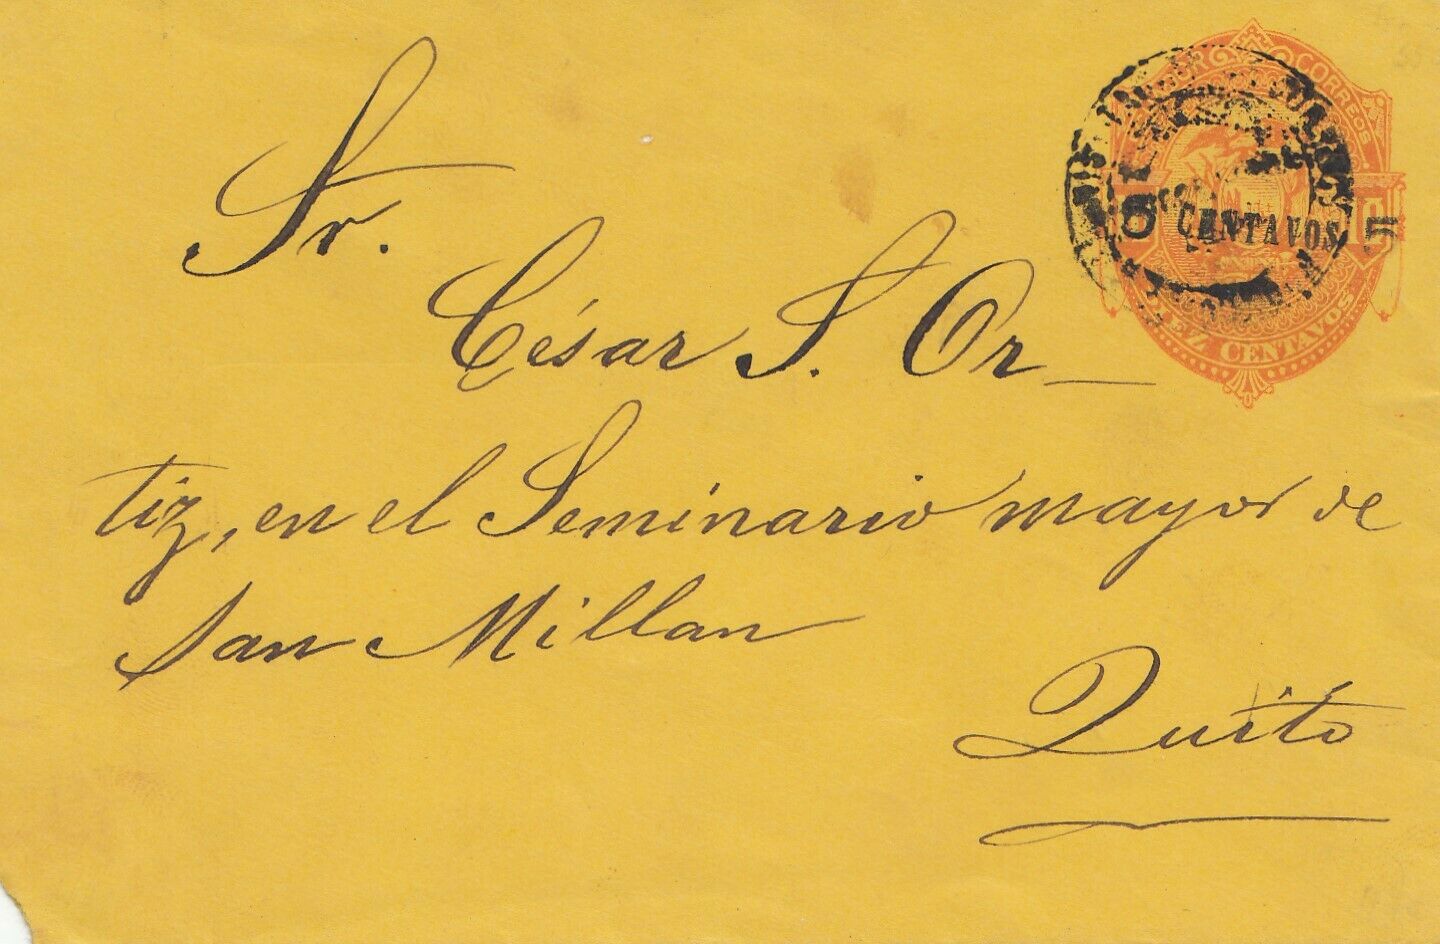 Sr.
César S. Or_
tiz, en el Seminario mayor de
San Millan
Quito
CORREOS
5 CENTAVOS 5
CENTAVOS